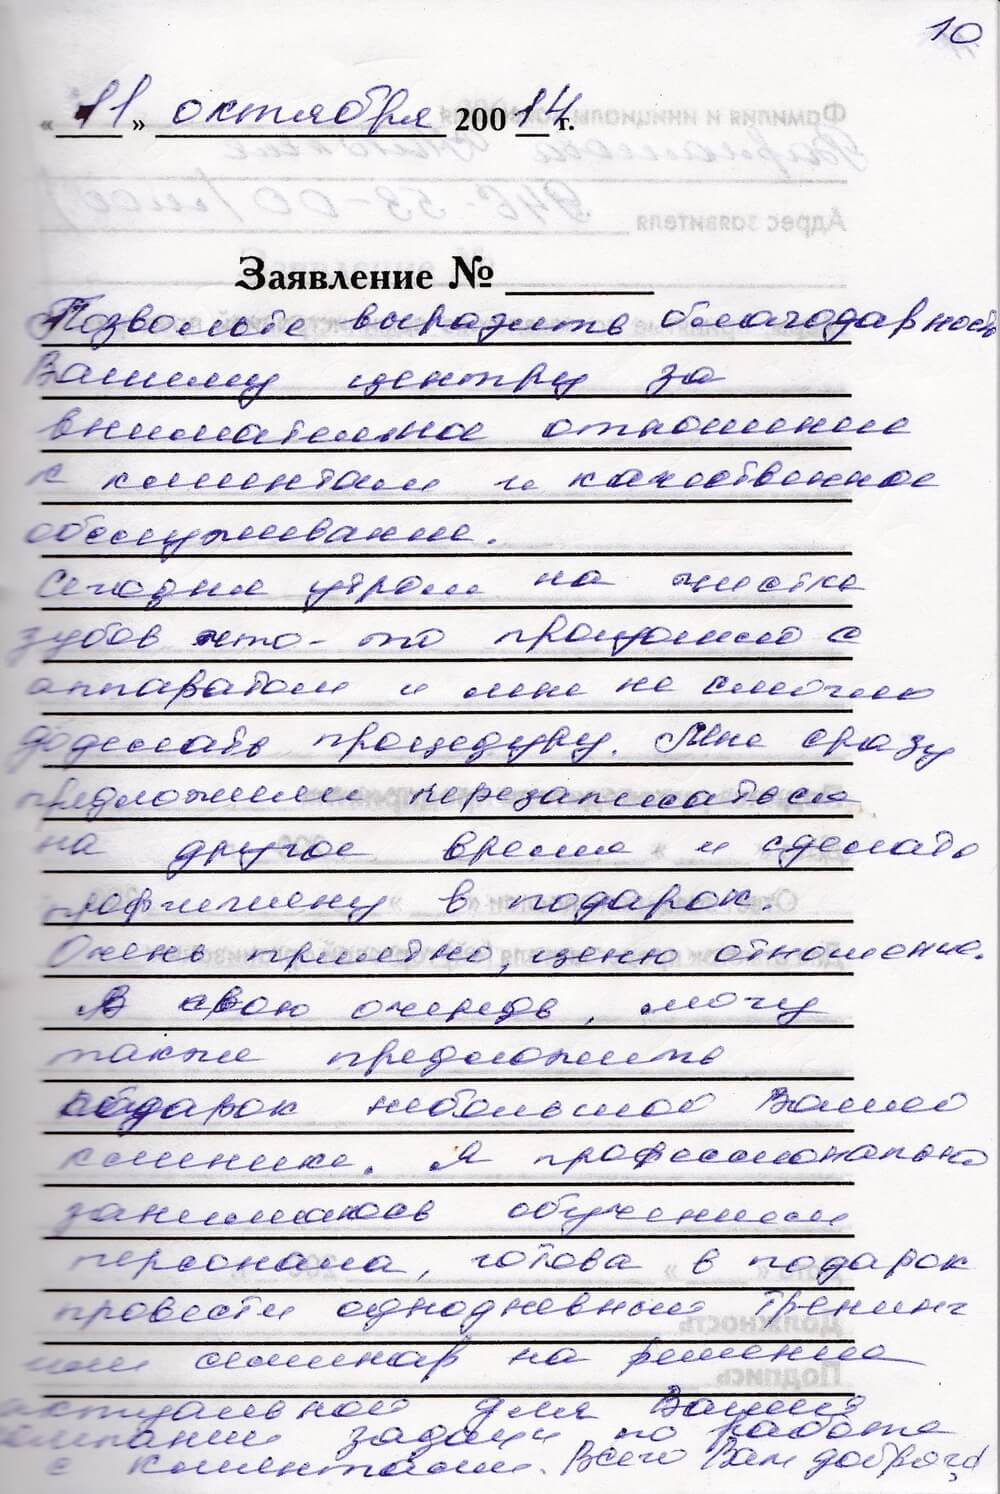 10
« 11 » октября 200 14 г.
Заявление № ______
Позвольте выразить благодарность
Вашему центру за
внимательное отношение
к клиентам и качественное
обслуживание.
Сегодня утром на чистке
зубов что-то произошло с
аппаратом и мне не смогли
доделать процедуру. Мне сразу
предложили перезаписаться
на другое время и сделать
профгигиену в подарок.
Очень приятно, ценю отношение.
Я в свою очередь, могу
также предложить
подарок небольшой Вашей
клинике. Я профессионально
занимаюсь обучением
персонала, готова в подарок
провести однодневный тренинг
или семинар на решение
актуальной для Вашей
компании задачи по работе
с клиентами. Всего Вам доброго!